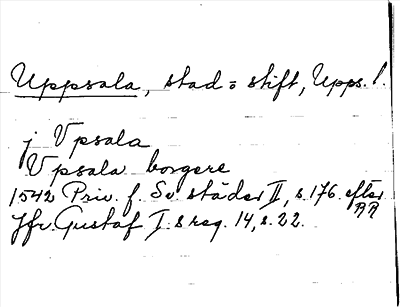 Uppsala, stad o stift, Upps. l.
j Vpsala
Vpsala borgere
1542 Priv. f. Sv. städer II, s. 176 efter RA
Jfr. Gustaf I:s reg. 14, s. 22.